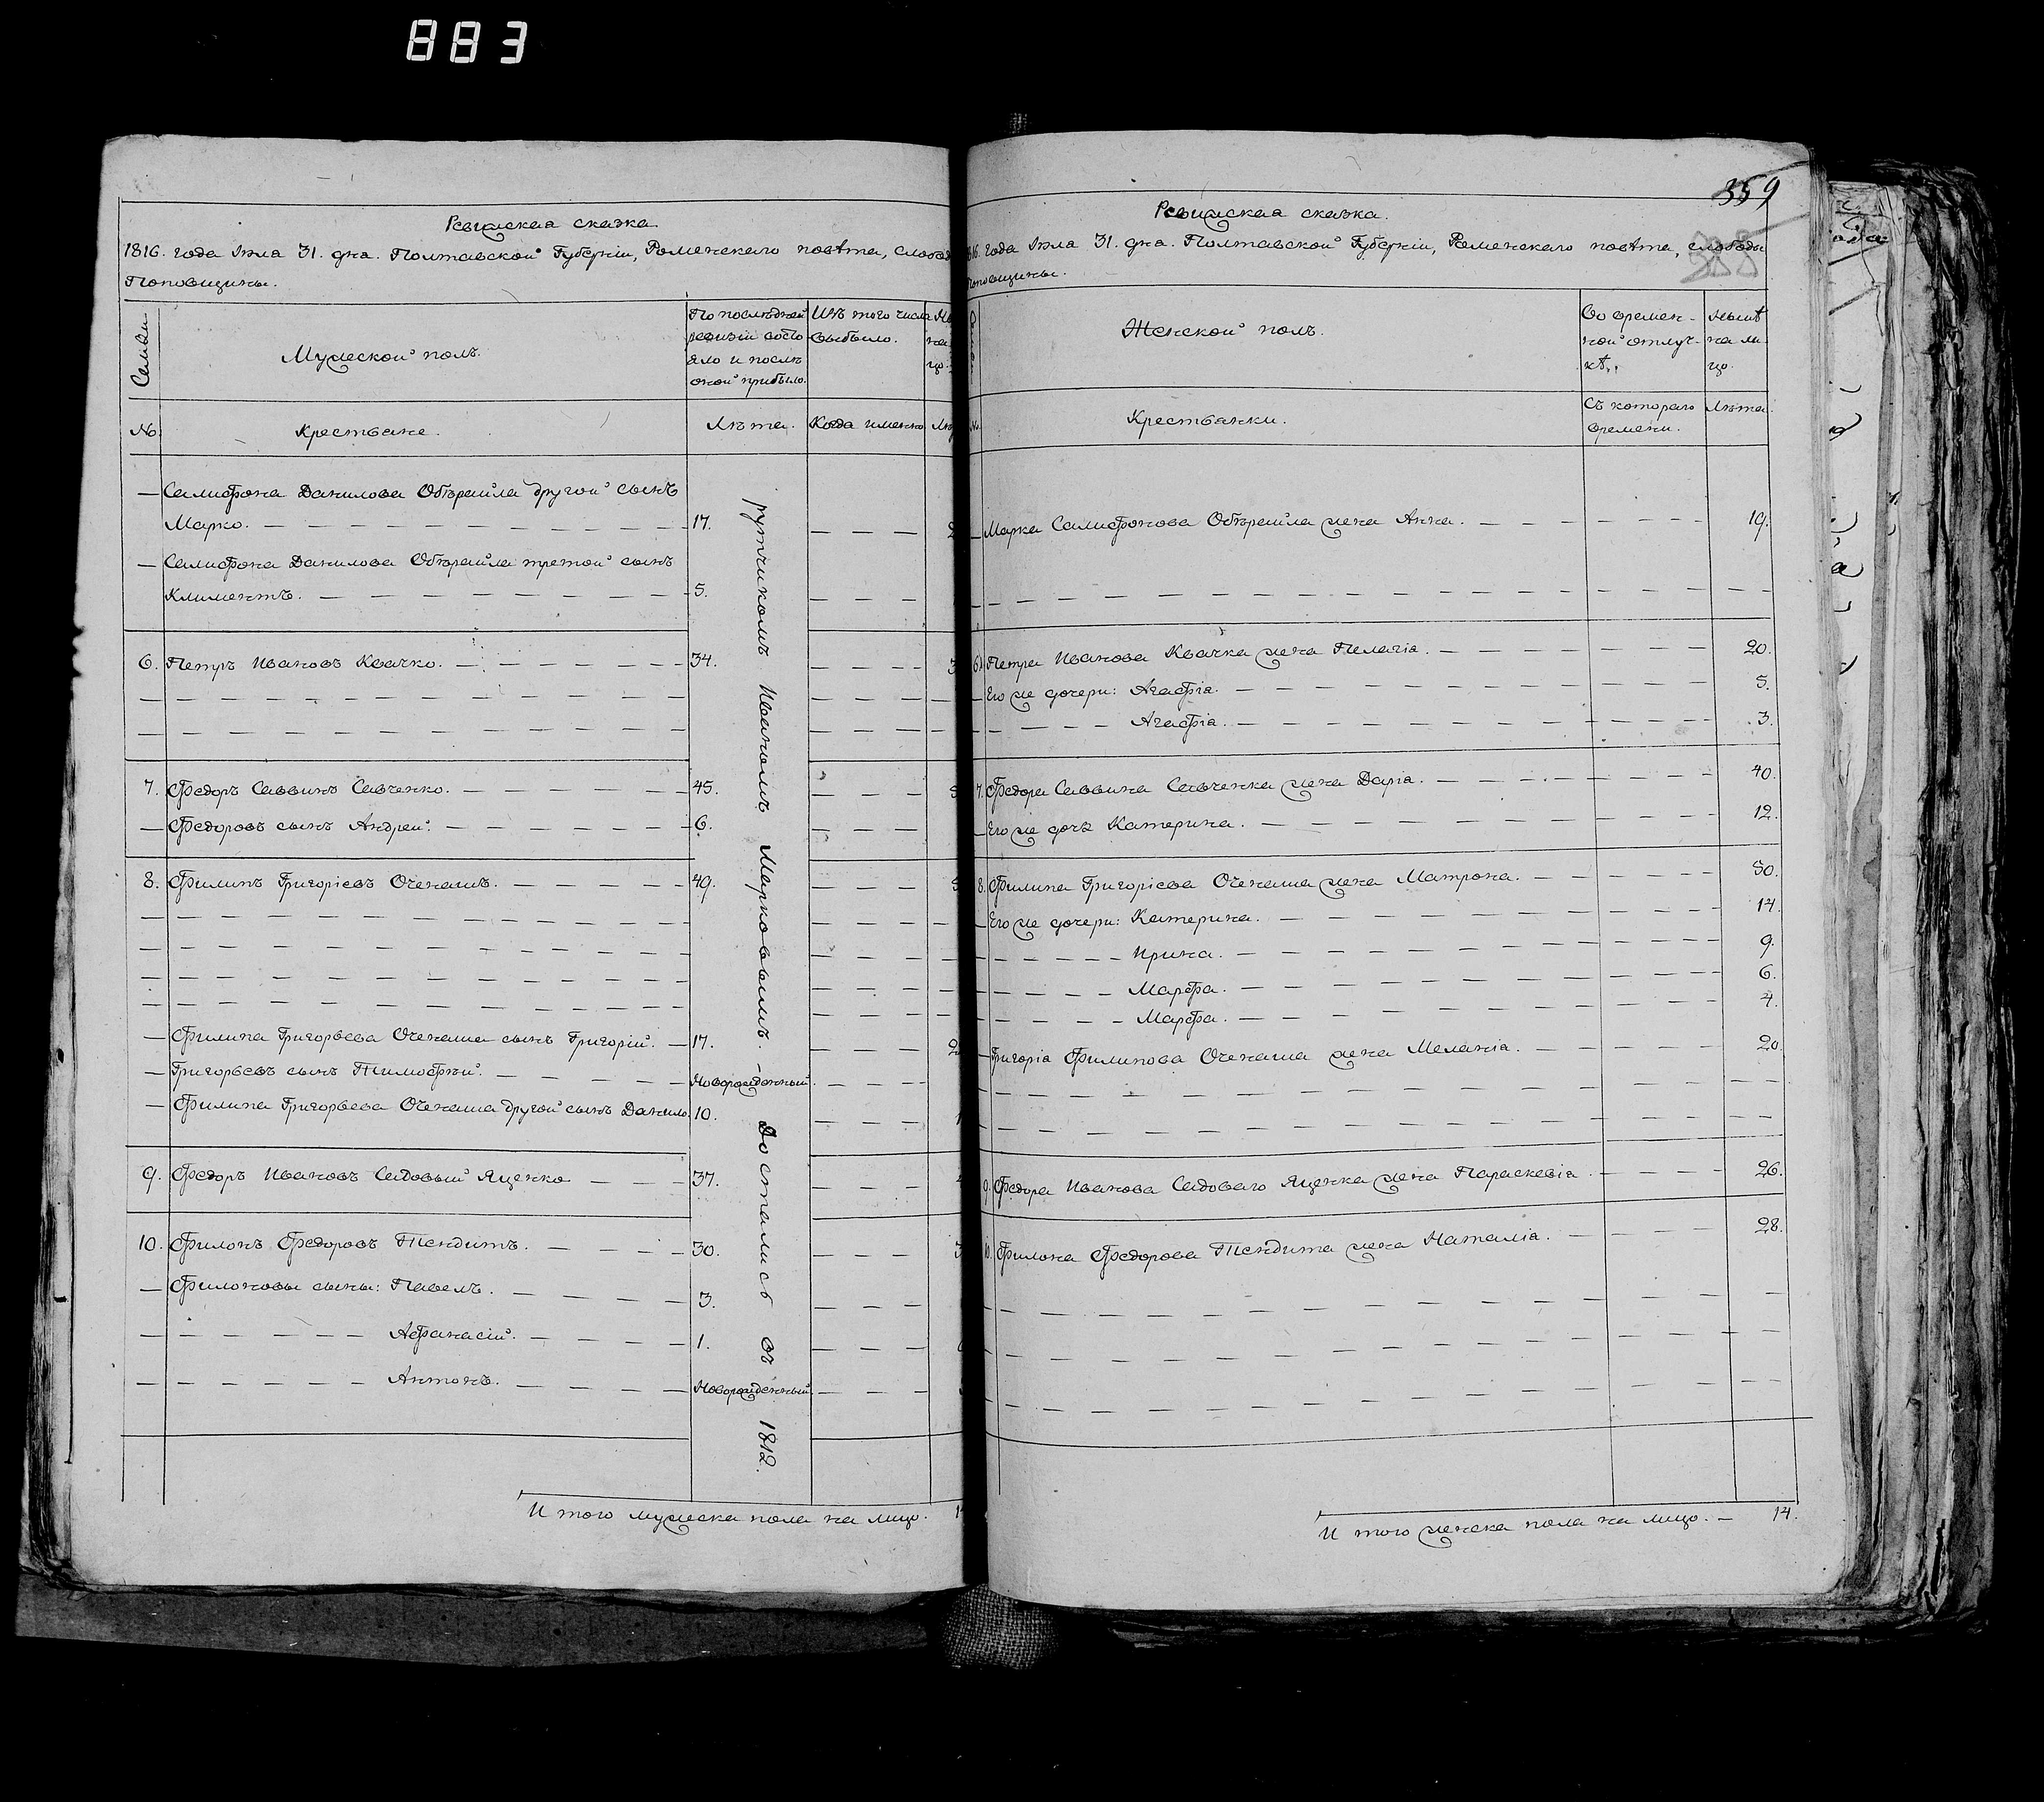 883
Ревижская сказка
1816. года Іюла 31. дна. Полтавской Губерніи, Роменскаго повѣта, слобод
Поповщины.
Семьи
Мужеской полъ.
По послѣдней
ревизіи состо
яло и послѣ
оной прибыло.
Изъ того числа
выбыло.
№
Крестьяне.
Лѣта.
Когда именно
— Самифона Данилова Обѣрайла другой сынъ
Марко. 17.
— Самифона Данилова Обѣрайла третой сынъ
Климентъ. 5.
6. Петръ Ивановъ Квачко. 34.
7. Федоръ Саввинъ Савченко. 45.
— Федоровъ сынъ Андрей. 6.
8. Филипъ Григоріевъ Оченашъ. 49.
— Филипа Григорьева Оченаша сынъ Григорій. 17.
— Григорьевъ сынъ Тимофѣй. Новорожденный.
— Филипа Григорьева Оченаша другой сынъ Данило. 10.
9. Федоръ Ивановъ Садовый Яценко 37.
10. Филонъ Федоровъ Тендитъ. 30.
— Филоновы сыны: Павелъ. 3.
Афанасій. 1.
Антонъ. Новорожденный.
рутчикомъ Иваномъ Марковымъ. — Достались въ 1812.
И того мужеска пола на лицо.
359
Ревижская сказка.
года Іюла 31. дна. Полтавской Губерніи, Роменскаго повѣта, слободы
Поповщины.
Женской полъ.
Во времен-
ной отлуч-
кѣ.
Нынѣ
на ли-
цо.
Крестьянки.
Съ котораго
времени.
Лѣта.
Марка Самифонова Обѣрайла жена Анна. 19.
6. Петра Иванова Квачка жена Пелагіа. 20.
Его же дочери: Агафіа. 5.
Агафіа. 3.
7. Федора Саввина Савченка жена Даріа. 40.
Его же дочь Катерина. 12.
8. Филипа Григоріева Оченаша жена Матрона. 50.
Его же дочери: Катерина. 14.
Ирина. 9.
Марфа. 6.
Марфа. 4.
Григоріа Филипова Оченаша жена Меланіа. 20.
9. Федора Иванова Садоваго Яценка жена Параскевіа. 26.
Филона Федорова Тендита жена Наталіа. 28.
И того женска пола на лицо. — 14.